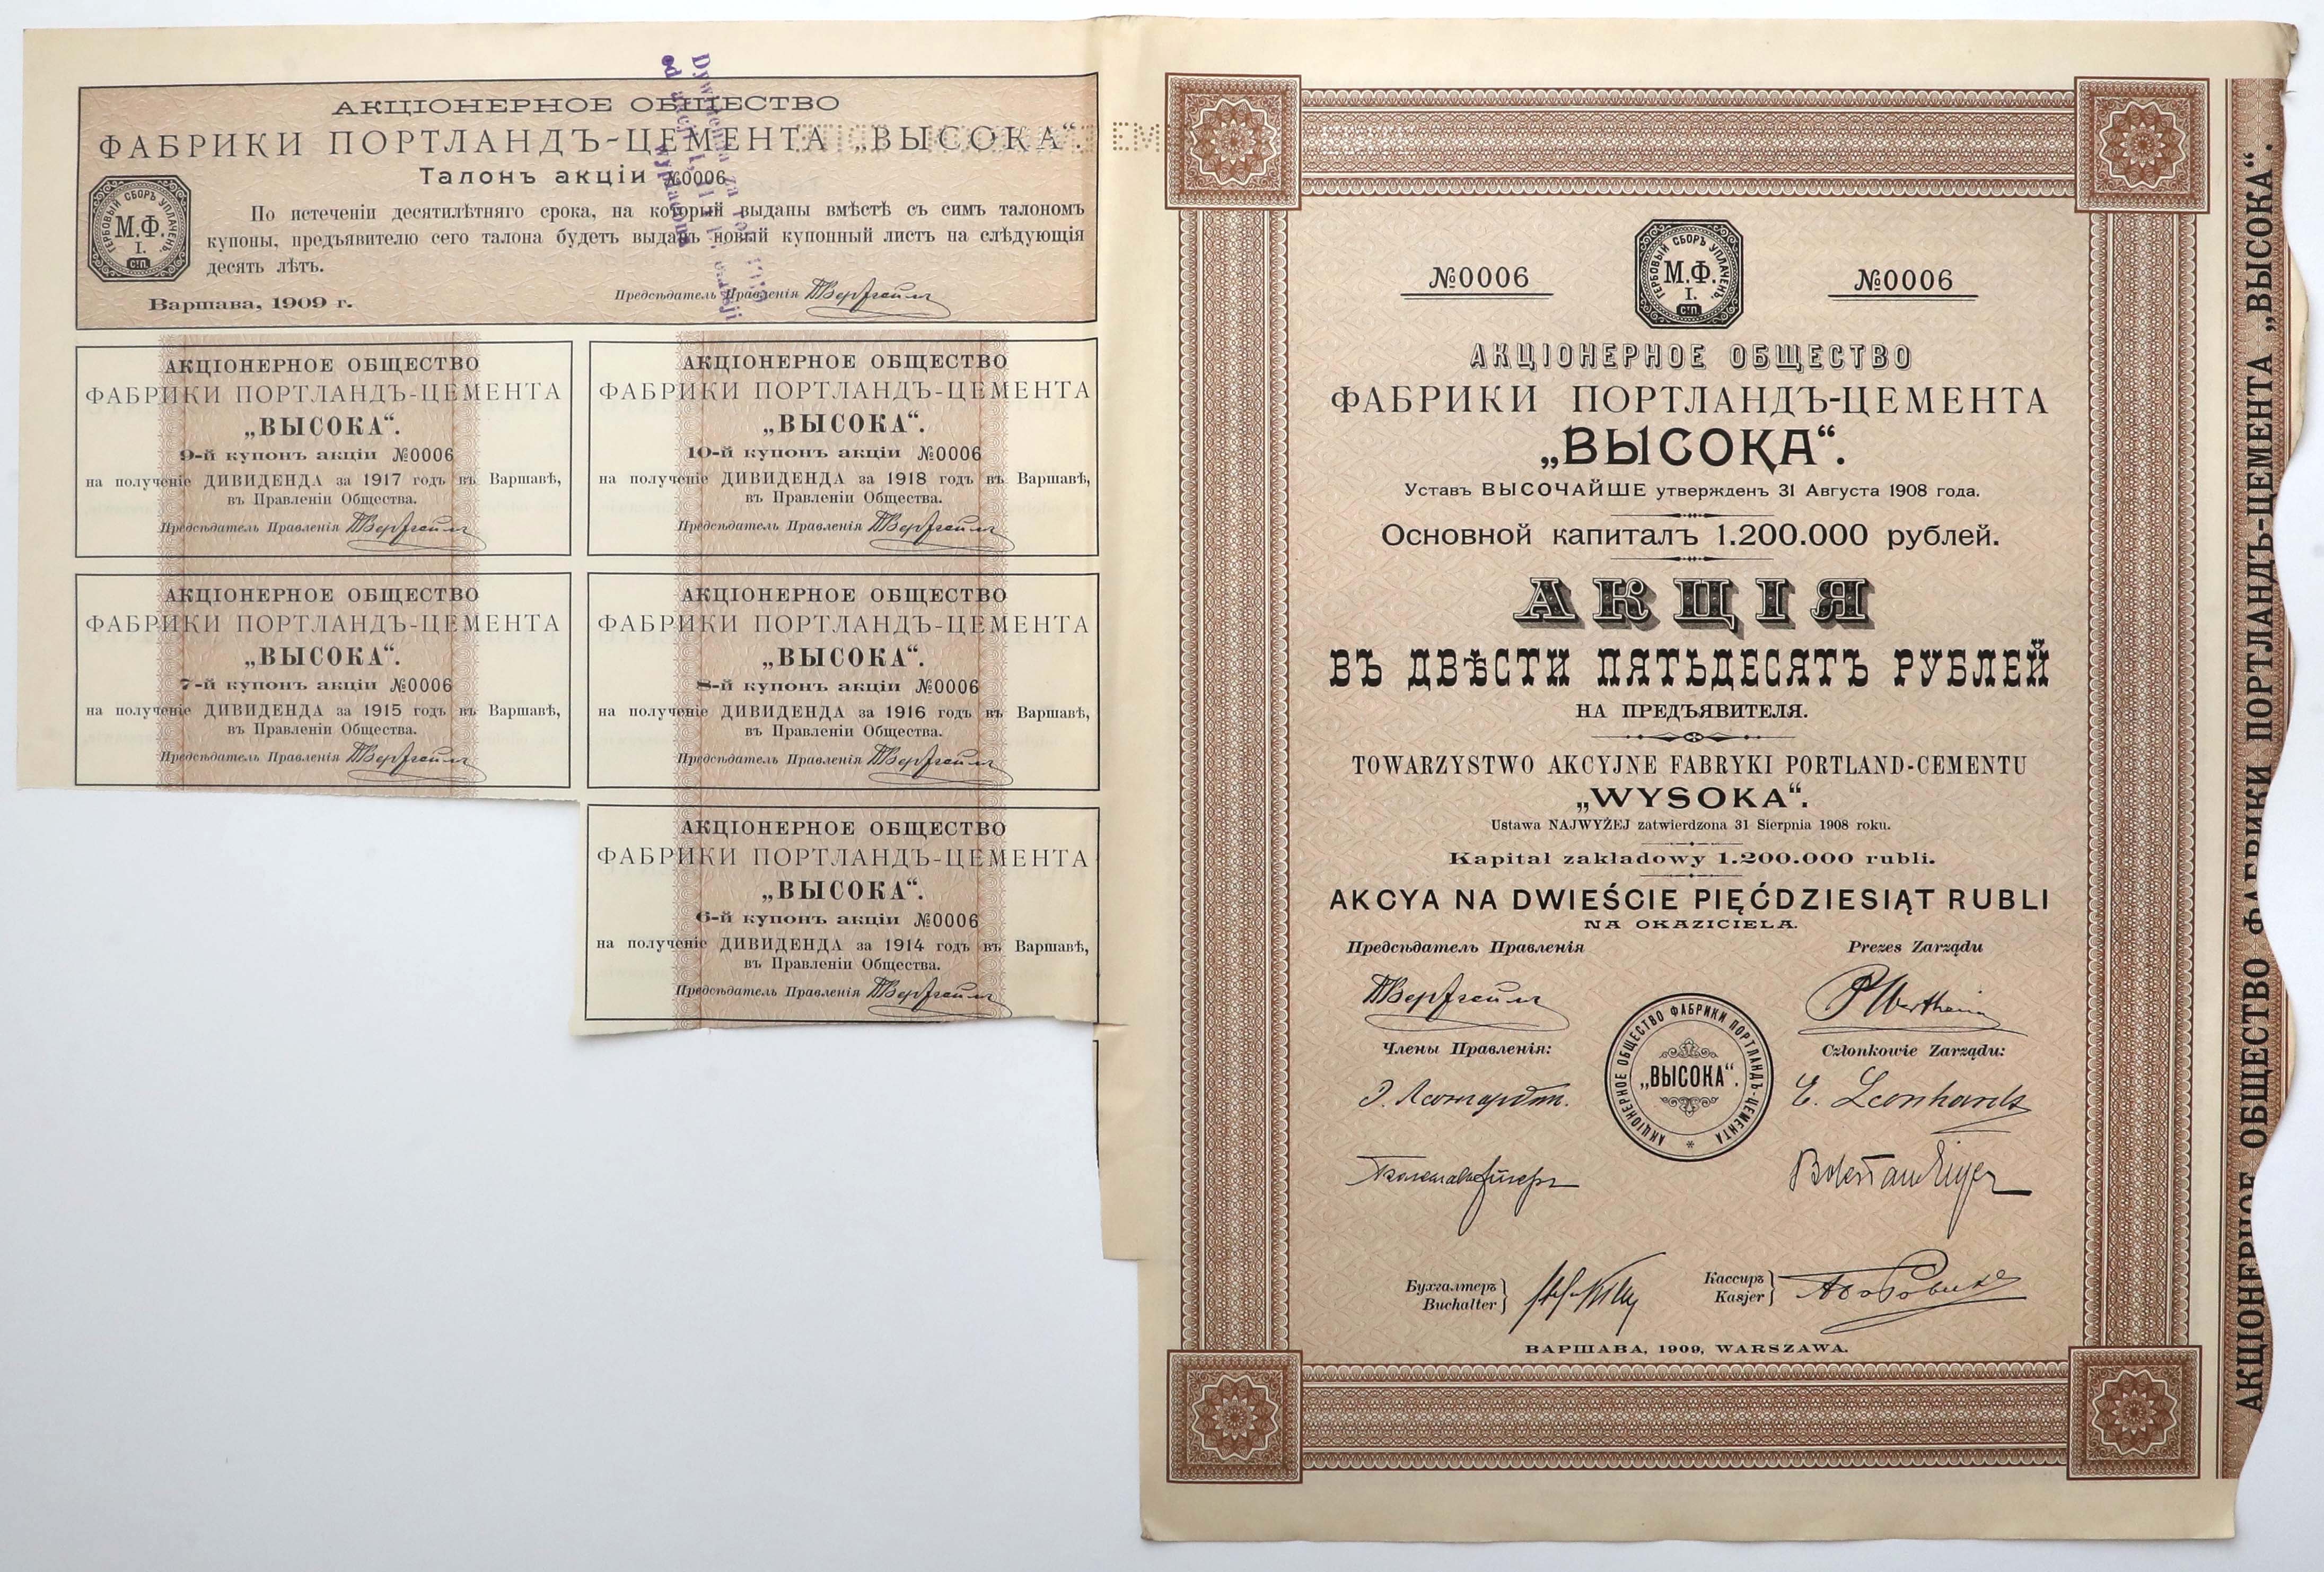 АКЦІОНЕРНОЕ ОБЩЕСТВО
ФАБРИКИ ПОРТЛАНДЪ-ЦЕМЕНТА „ВЫСОКА“.
Талонъ акціи №0006
По истеченіи десятилѣтняго срока, на который выданы вмѣстѣ съ симъ талономъ
купоны, предъявителю сего талона будетъ выданъ новый купонный листъ на слѣдующія
десять лѣтъ.
ГЕРБОВЫЙ СБОРЪ УПЛАЧЕНЪ.
М.Ф.
I.
СП.
Варшава, 1909 г.
Предсѣдатель Правленія
АКЦІОНЕРНОЕ ОБЩЕСТВО
ФАБРИКИ ПОРТЛАНДЪ-ЦЕМЕНТА
„ВЫСОКА“.
9-й купонъ акціи №0006
на полученіе ДИВИДЕНДА за 1917 годъ въ Варшавѣ,
въ Правленіи Общества.
Предсѣдатель Правленія
АКЦІОНЕРНОЕ ОБЩЕСТВО
ФАБРИКИ ПОРТЛАНДЪ-ЦЕМЕНТА
„ВЫСОКА“.
10-й купонъ акціи №0006
на полученіе ДИВИДЕНДА за 1918 годъ въ Варшавѣ,
въ Правленіи Общества.
Предсѣдатель Правленія
АКЦІОНЕРНОЕ ОБЩЕСТВО
ФАБРИКИ ПОРТЛАНДЪ-ЦЕМЕНТА
„ВЫСОКА“.
7-й купонъ акціи №0006
на полученіе ДИВИДЕНДА за 1915 годъ въ Варшавѣ,
въ Правленіи Общества.
Предсѣдатель Правленія
АКЦІОНЕРНОЕ ОБЩЕСТВО
ФАБРИКИ ПОРТЛАНДЪ-ЦЕМЕНТА
„ВЫСОКА“.
8-й купонъ акціи №0006
на полученіе ДИВИДЕНДА за 1916 годъ въ Варшавѣ,
въ Правленіи Общества.
Предсѣдатель Правленія
АКЦІОНЕРНОЕ ОБЩЕСТВО
ФАБРИКИ ПОРТЛАНДЪ-ЦЕМЕНТА
„ВЫСОКА“.
6-й купонъ акціи №0006
на полученіе ДИВИДЕНДА за 1914 годъ въ Варшавѣ,
въ Правленіи Общества.
Предсѣдатель Правленія
№0006
ГЕРБОВЫЙ СБОРЪ УПЛАЧЕНЪ.
М.Ф.
I.
СП.
№0006
АКЦІОНЕРНОЕ ОБЩЕСТВО
ФАБРИКИ ПОРТЛАНДЪ-ЦЕМЕНТА
„ВЫСОКА“.
Уставъ ВЫСОЧАЙШЕ утвержденъ 31 Августа 1908 года.
Основной капиталъ 1.200.000 рублей.
АКЦІЯ
ВЪ ДВѢСТИ ПЯТЬДЕСЯТЪ РУБЛЕЙ
НА ПРЕДЪЯВИТЕЛЯ.
TOWARZYSTWO AKCYJNE FABRYKI PORTLAND-CEMENTU
„WYSOKA“.
Ustawa NAJWYŻEJ zatwierdzona 31 Sierpnia 1908 roku.
Kapitał zakładowy 1.200.000 rubli.
AKCYA NA DWIEŚCIE PIĘĆDZIESIĄT RUBLI
NA OKAZICIELA.
Предсѣдатель Правленія
Prezes Zarządu
P Wertheim
Члены Правленія:
Członkowie Zarządu:
E. Leonhardt
АКЦІОНЕРНОЕ ОБЩЕСТВО ФАБРИКИ ПОРТЛАНДЪ-ЦЕМЕНТА
„ВЫСОКА“.
Бухгалтеръ
Buchalter
Кассиръ
Kasjer
ВАРШАВА, 1909, WARSZAWA.
АКЦІОНЕРНОЕ ОБЩЕСТВО ФАБРИКИ ПОРТЛАНДЪ-ЦЕМЕНТА „ВЫСОКА“.